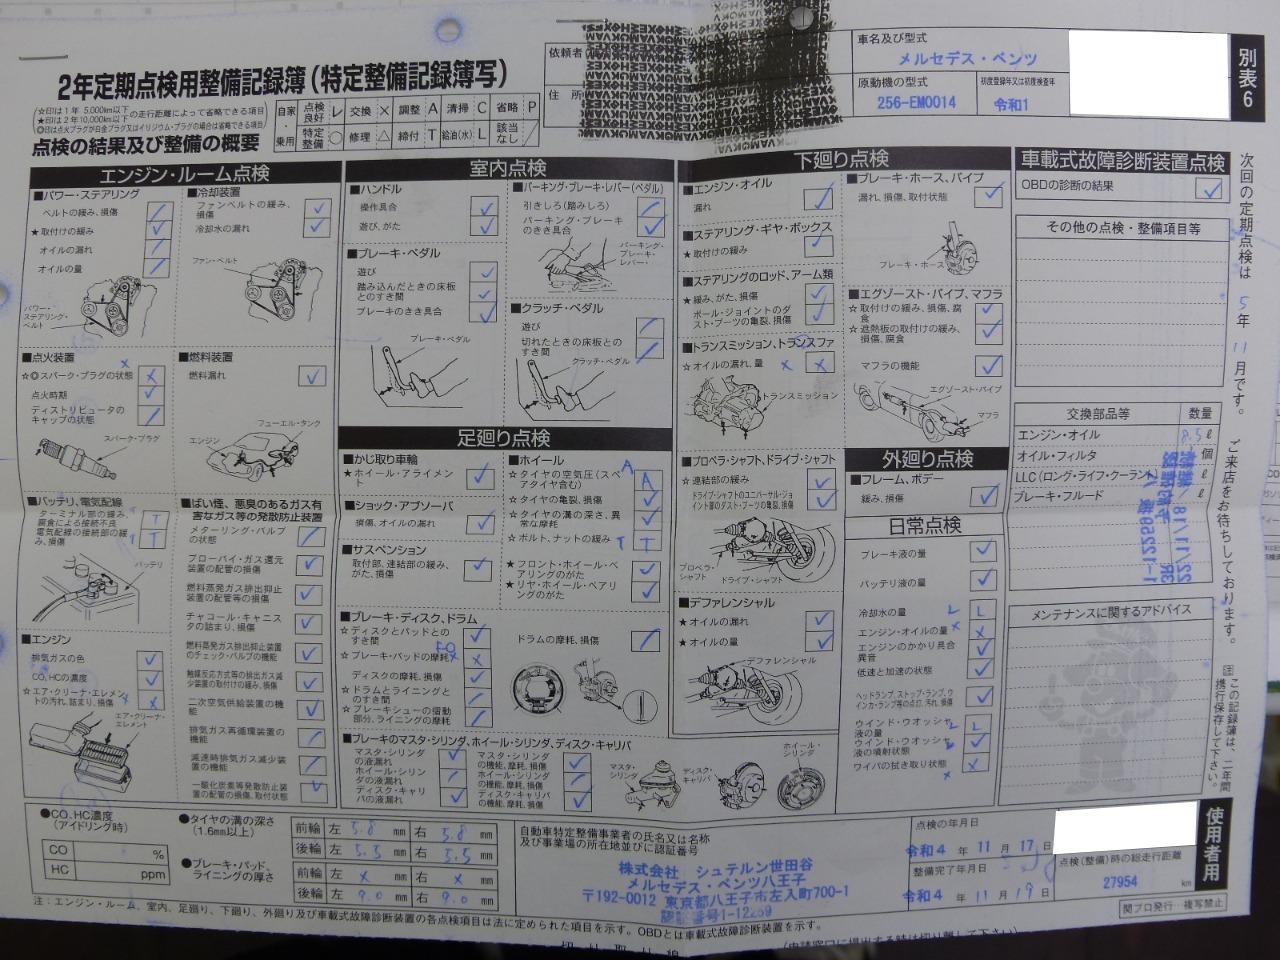 2年定期点検用整備記録簿(特定整備記録簿写)
☆印は1年 5,000km以下
★印は2年10,000km以下の走行距離によって省略できる項目
◎印は点火プラグが白金プラグ又はイリジウム・プラグの場合は省略できる項目
点検の結果及び整備の概要
自家・乗用
点検良好 レ 交換 × 調整 A 清掃 C 省略 P
特定整備 ○ 修理 △ 締付 T 給油(水) L 該当なし /
依頼者
住 所
車名及び型式
メルセデス・ベンツ
原動機の型式
256-EM0014
初度登録年又は初度検査年
令和1
別表6
エンジン・ルーム点検
■パワー・ステアリング
ベルトの緩み、損傷
★取付けの緩み
オイルの漏れ
オイルの量
パワー・ステアリング・ベルト
■冷却装置
ファンベルトの緩み、損傷
冷却水の漏れ
ファン・ベルト
■点火装置
☆◎スパーク・プラグの状態
点火時期
ディストリビュータのキャップの状態
スパーク・プラグ
■燃料装置
燃料漏れ
フューエル・タンク
エンジン
■バッテリ、電気配線
ターミナル部の緩み
腐食による接続不良
電気配線の接続部の緩み、損傷
T
T
バッテリ
■エンジン
排気ガスの色
CO、HCの濃度
☆エア・クリーナ・エレメントの汚れ、詰まり、損傷
エア・クリーナ・エレメント
■ばい煙、悪臭のあるガス有害なガス等の発散防止装置
メターリング・バルブの状態
ブローバイ・ガス還元装置の配管の損傷
燃料蒸発ガス排出抑止装置の配管等の損傷
チャコール・キャニスタの詰まり、損傷
燃料蒸発ガス排出抑止装置のチェック・バルブの機能
触媒反応方式等の排出ガス減少装置の取付けの緩み、損傷
二次空気供給装置の機能
排気ガス再循環装置の機能
減速時排気ガス減少装置の機能
一酸化炭素等発散防止装置の配管の損傷、取付状態
室内点検
■ハンドル
操作具合
遊び、がた
■ブレーキ・ペダル
遊び
踏み込んだときの床板とのすき間
ブレーキのきき具合
ブレーキ・ペダル
■パーキング・ブレーキ・レバー(ペダル)
引きしろ(踏みしろ)
パーキング・ブレーキのきき具合
パーキング・ブレーキ・レバー
■クラッチ・ペダル
遊び
切れたときの床板とのすき間
クラッチ・ペダル
足廻り点検
■かじ取り車輪
★ホイール・アライメント
■ショック・アブソーバ
損傷、オイルの漏れ
■サスペンション
取付部、連結部の緩み、がた、損傷
■ホイール
☆タイヤの空気圧(スペアタイヤ含む)
A
☆タイヤの亀裂、損傷
☆タイヤの溝の深さ、異常な摩耗
☆ボルト、ナットの緩み
T
★フロント・ホイール・ベアリングのがた
★リヤ・ホイール・ベアリングのがた
■ブレーキ・ディスク、ドラム
☆ディスクとパッドとのすき間
☆ブレーキ・パッドの摩耗
ディスクの摩耗、損傷
☆ドラムとライニングとのすき間
☆ブレーキシューの摺動部分、ライニングの摩耗
ドラムの摩耗、損傷
■ブレーキのマスタ・シリンダ、ホイール・シリンダ、ディスク・キャリパ
マスタ・シリンダの液漏れ
ホイール・シリンダの液漏れ
ディスク・キャリパの液漏れ
マスタ・シリンダの機能、摩耗、損傷
ホイール・シリンダの機能、摩耗、損傷
ディスク・キャリパの機能、摩耗、損傷
マスタ・シリンダ
ディスク・キャリパ
ホイール・シリンダ
下廻り点検
■エンジン・オイル
漏れ
■ステアリング・ギヤ・ボックス
★取付けの緩み
■ステアリングのロッド、アーム類
★緩み、がた、損傷
ボール・ジョイントのダスト・ブーツの亀裂、損傷
■トランスミッション、トランスファ
☆オイルの漏れ、量
トランスミッション
■プロペラ・シャフト、ドライブ・シャフト
☆連結部の緩み
ドライブ・シャフトのユニバーサル・ジョイント部のダスト・ブーツの亀裂、損傷
プロペラ・シャフト
ドライブ・シャフト
■デファレンシャル
★オイルの漏れ
★オイルの量
デファレンシャル
■ブレーキ・ホース、パイプ
漏れ、損傷、取付状態
ブレーキ・ホース
■エグゾースト・パイプ、マフラ
☆取付けの緩み、損傷、腐食
☆遮熱板の取付けの緩み、損傷、腐食
マフラの機能
エグゾースト・パイプ
マフラ
外廻り点検
■フレーム、ボデー
緩み、損傷
日常点検
ブレーキ液の量
バッテリ液の量
冷却水の量
L
エンジン・オイルの量
エンジンのかかり具合 異音
低速と加速の状態
ヘッドランプ、ストップ・ランプ、ウインカ・ランプ等の点灯、汚れ、損傷
ウインド・ウオッシャ液の量
L
ウインド・ウオッシャ液の噴射状態
ワイパの拭き取り状態
車載式故障診断装置点検
OBDの診断の結果
その他の点検・整備項目等
交換部品等 数量
エンジン・オイル 8.5 ℓ
オイル・フィルタ 個
LLC(ロング・ライフ・クーラント) ℓ
ブレーキ・フルード ℓ
メンテナンスに関するアドバイス
次回の定期点検は 5 年 11 月です。 ご来店をお待ちしております。
注 この記録簿は、二年間携行保存して下さい。
使用者用
●CO、HC濃度(アイドリング時)
CO %
HC ppm
●タイヤの溝の深さ(1.6mm以上)
前輪 左 5.8 mm 右 5.8 mm
後輪 左 5.5 mm 右 5.5 mm
●ブレーキ・パッド、ライニングの厚さ
前輪 左 × mm 右 × mm
後輪 左 9.0 mm 右 9.0 mm
自動車特定整備事業者の氏名又は名称及び事業場の所在地並びに認証番号
株式会社 シュテルン世田谷
メルセデス・ベンツ八王子
〒192-0012 東京都八王子市左入町700-1
認証番号1-12269
点検の年月日
令和 4 年 11 月 17 日
整備完了年月日
令和 4 年 11 月 19 日
点検(整備)時の総走行距離
27954 km
注:エンジン・ルーム、室内、足廻り、下廻り、外廻り及び車載式故障診断装置の各点検項目は法に定められた項目を示す。OBDとは車載式故障診断装置を示す。
関プロ発行-複写禁止